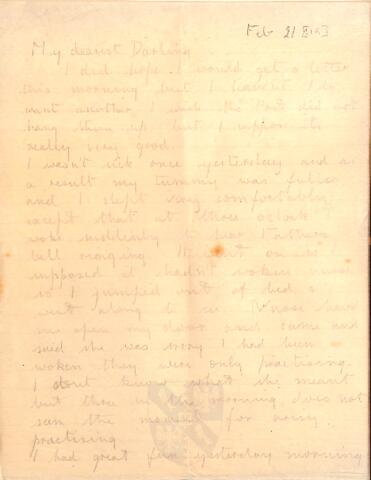 Feb 21
My dearest Darling
I did hope I would get a letter
this morning but I haven't. I do
want another. I wish the Post did not
hang them up, but I suppose its
really very good.
I wasn't sick once yesterday and as
a result my tummy was fuller
and I slept very comfortably
except that at three oclock I
woke suddenly to hear Father's
bell ringing. It went on so I
supposed it hadn't woken nurse
so I jumped out of bed &
went along to see. Nurse heard
me open my door and came and
said she was sorry I had been
woken they were only practising.
I don't know what she meant
but three in the morning does not
seem the moment for noisy
practising
I had great fun yesterday morning